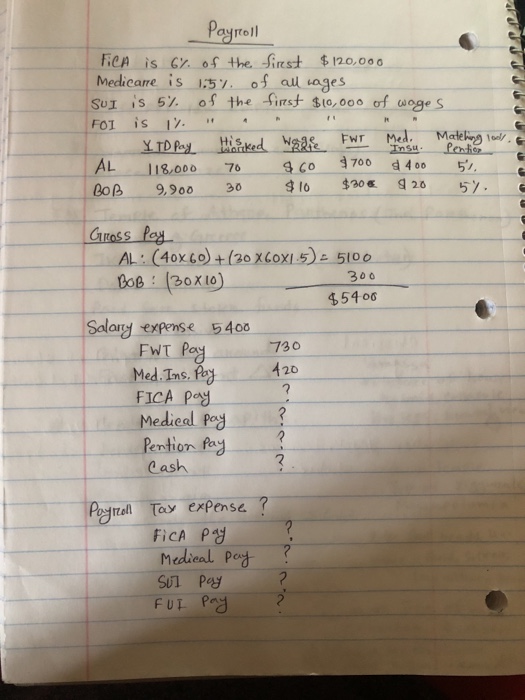 Payroll
FiCA is 6% of the first $120,000
Medicare is 1.5% of all wages
SUI is 5% of the first $10,000 of wages
FOI is 1% " " " " " "
YTD Pay Hrs Worked Wage Rate FWT Med. Insu. Matching 100% Pention
AL 118,000 70 $60 $700 $400 5%
BOB 9,900 30 $10 $30 $20 5%.
Gross Pay
AL: (40x60) + (30x60x1.5) = 5100
BOB : (30x10) 300
$5400
Salary expense 5400
FWT Pay 730
Med. Ins. Pay 420
FICA Pay ?
Medical Pay ?
Pention Pay ?
Cash ?
Payroll Tax expense ?
FiCA Pay ?
Medical Pay ?
SUI Pay ?
FUI Pay ?